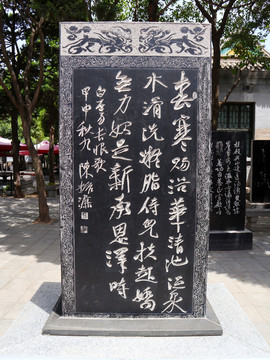 春寒赐浴華清池温泉
水滑洗凝脂侍兒扶起嬌
无力始是新承恩澤時
白居易長恨歌
甲申秋九 陳振濂